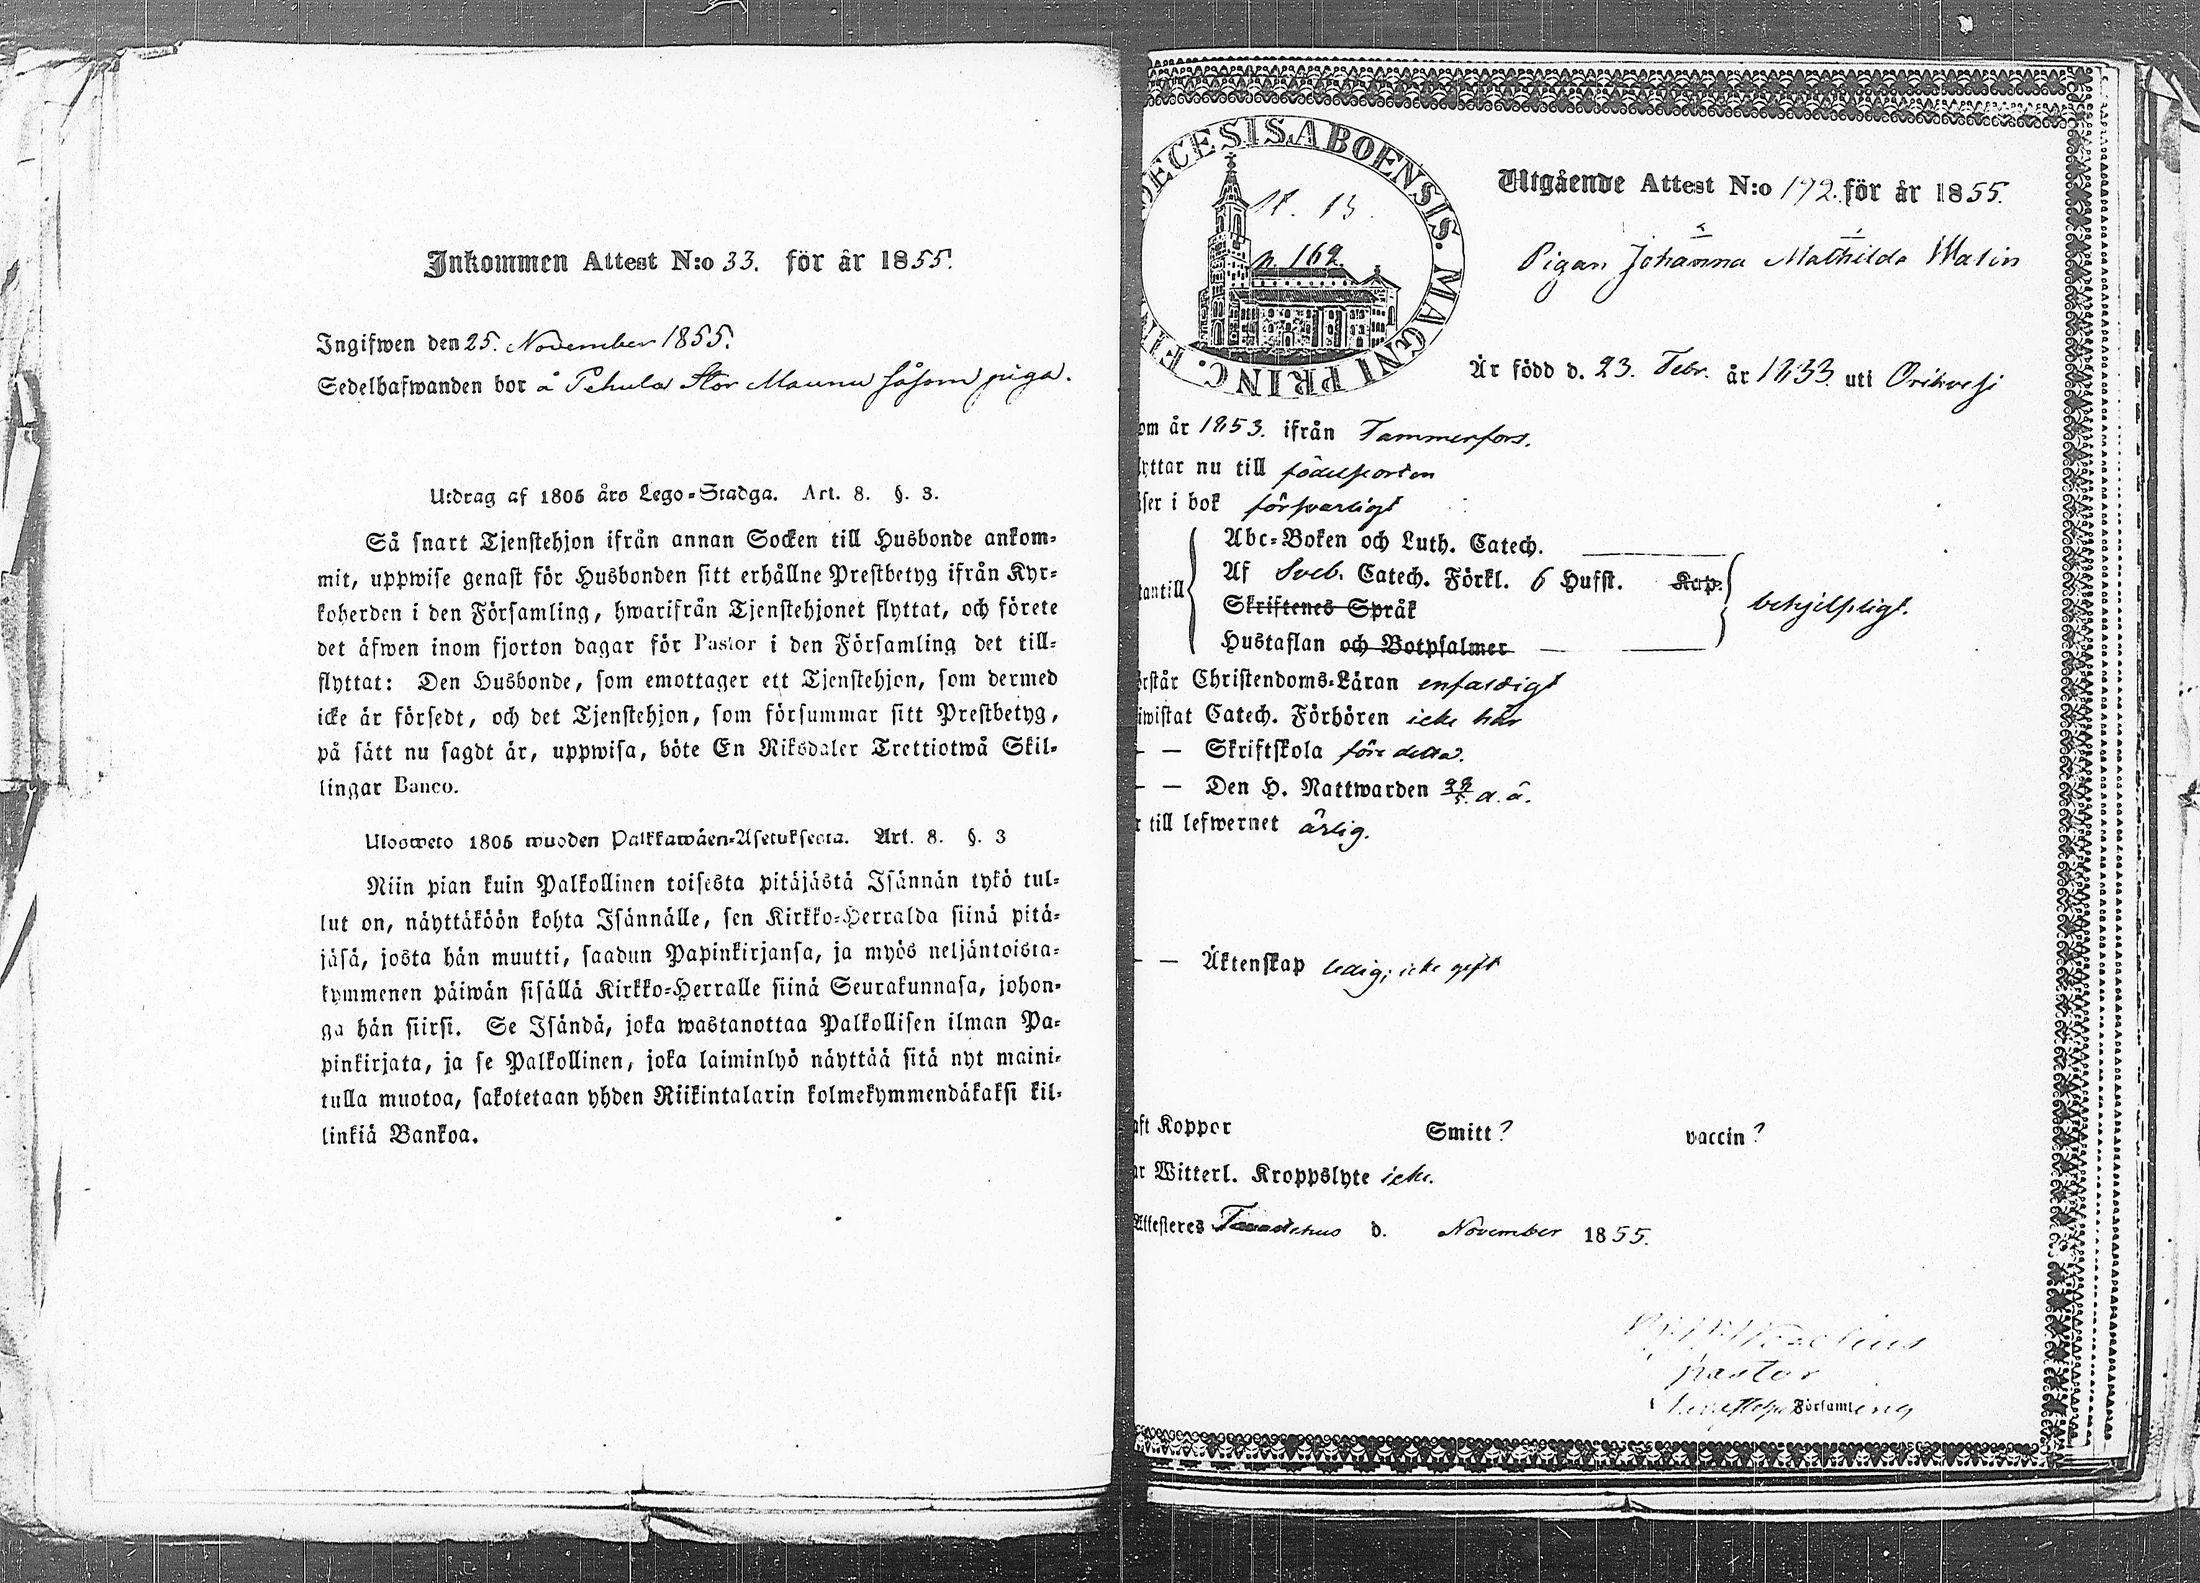 Inkommen Attest N:o 33. för år 1855.
Ingifwen den 25. November 1855.
Sedelhafwanden bor å Pehula Stor Maunu såsom piga.
Utdrag af 1805 års Lego-Stadga. Art. 8. §. 3.
Så snart Tjenstehjon ifrån annan Socken till Husbonde ankom-
mit, uppwise genast för Husbonden sitt erhållne Prestbetyg ifrån Kyr-
koherden i den Församling, hwarifrån Tjenstehjonet flyttat, och förete
det äfwen inom fjorton dagar för Pastor i den Församling det till-
flyttat: Den Husbonde, som emottager ett Tjenstehjon, som dermed
icke är försedt, och det Tjenstehjon, som försummar sitt Prestbetyg,
på sätt nu sagdt är, uppwisa, böte En Riksdaler Trettiotwå Skil-
lingar Banco.
Ulosweto 1805 wuoden Palkkawäen-Asetuksesta. Art. 8. §. 3
Niin pian kuin Palkollinen toisesta pitäjästä Isännän tykö tul-
lut on, näyttäköön kohta Isännälle, sen Kirkko-Herralda siinä pitä-
jäsä, josta hän muutti, saadun Papinkirjansa, ja myös neljäntoista-
kymmenen päiwän sisällä Kirkko-Herralle siinä Seurakunnasa, johon-
ga hän siirsi. Se Isändä, joka wastanottaa Palkollisen ilman Pa-
pinkirjata, ja se Palkollinen, joka laiminlyö näyttää sitä nyt maini-
tulla muotoa, sakotetaan yhden Riikintalarin kolmekymmendäkaksi kil-
linkiä Bankoa.
OECESIS ABOENSIS. MAGNI PRINC. FIN
N. 13.
n. 162.
Utgående Attest N:o 192. för år 1855.
Pigan Johanna Mathilda Malin
Är född d. 23. Febr. år 1833. uti Orihvesi
om år 1853. ifrån Tammerfors.
yttar nu till födelseorten
äser i bok försvarligt
Abc-Boken och Luth. Catech.
tantill Af Sveb. Catech. Förkl. 6 Hufst. Kap. behjelpligt.
Skriftenes Språk
Hustaflan och Botpsalmer
örstår Christendoms-Läran enfaldigt
iwistat Catech. Förhören icke här
- — Skriftskola före detta.
- — Den H. Nattwarden d. å.
r till lefwernet ärlig.
- — Äktenskap ledig; icke gift
aft Koppor Smitt? vaccin?
ar Witterl. Kroppslyte icke.
Attesteres Tavastehus d. November 1855.
pastor
Församling